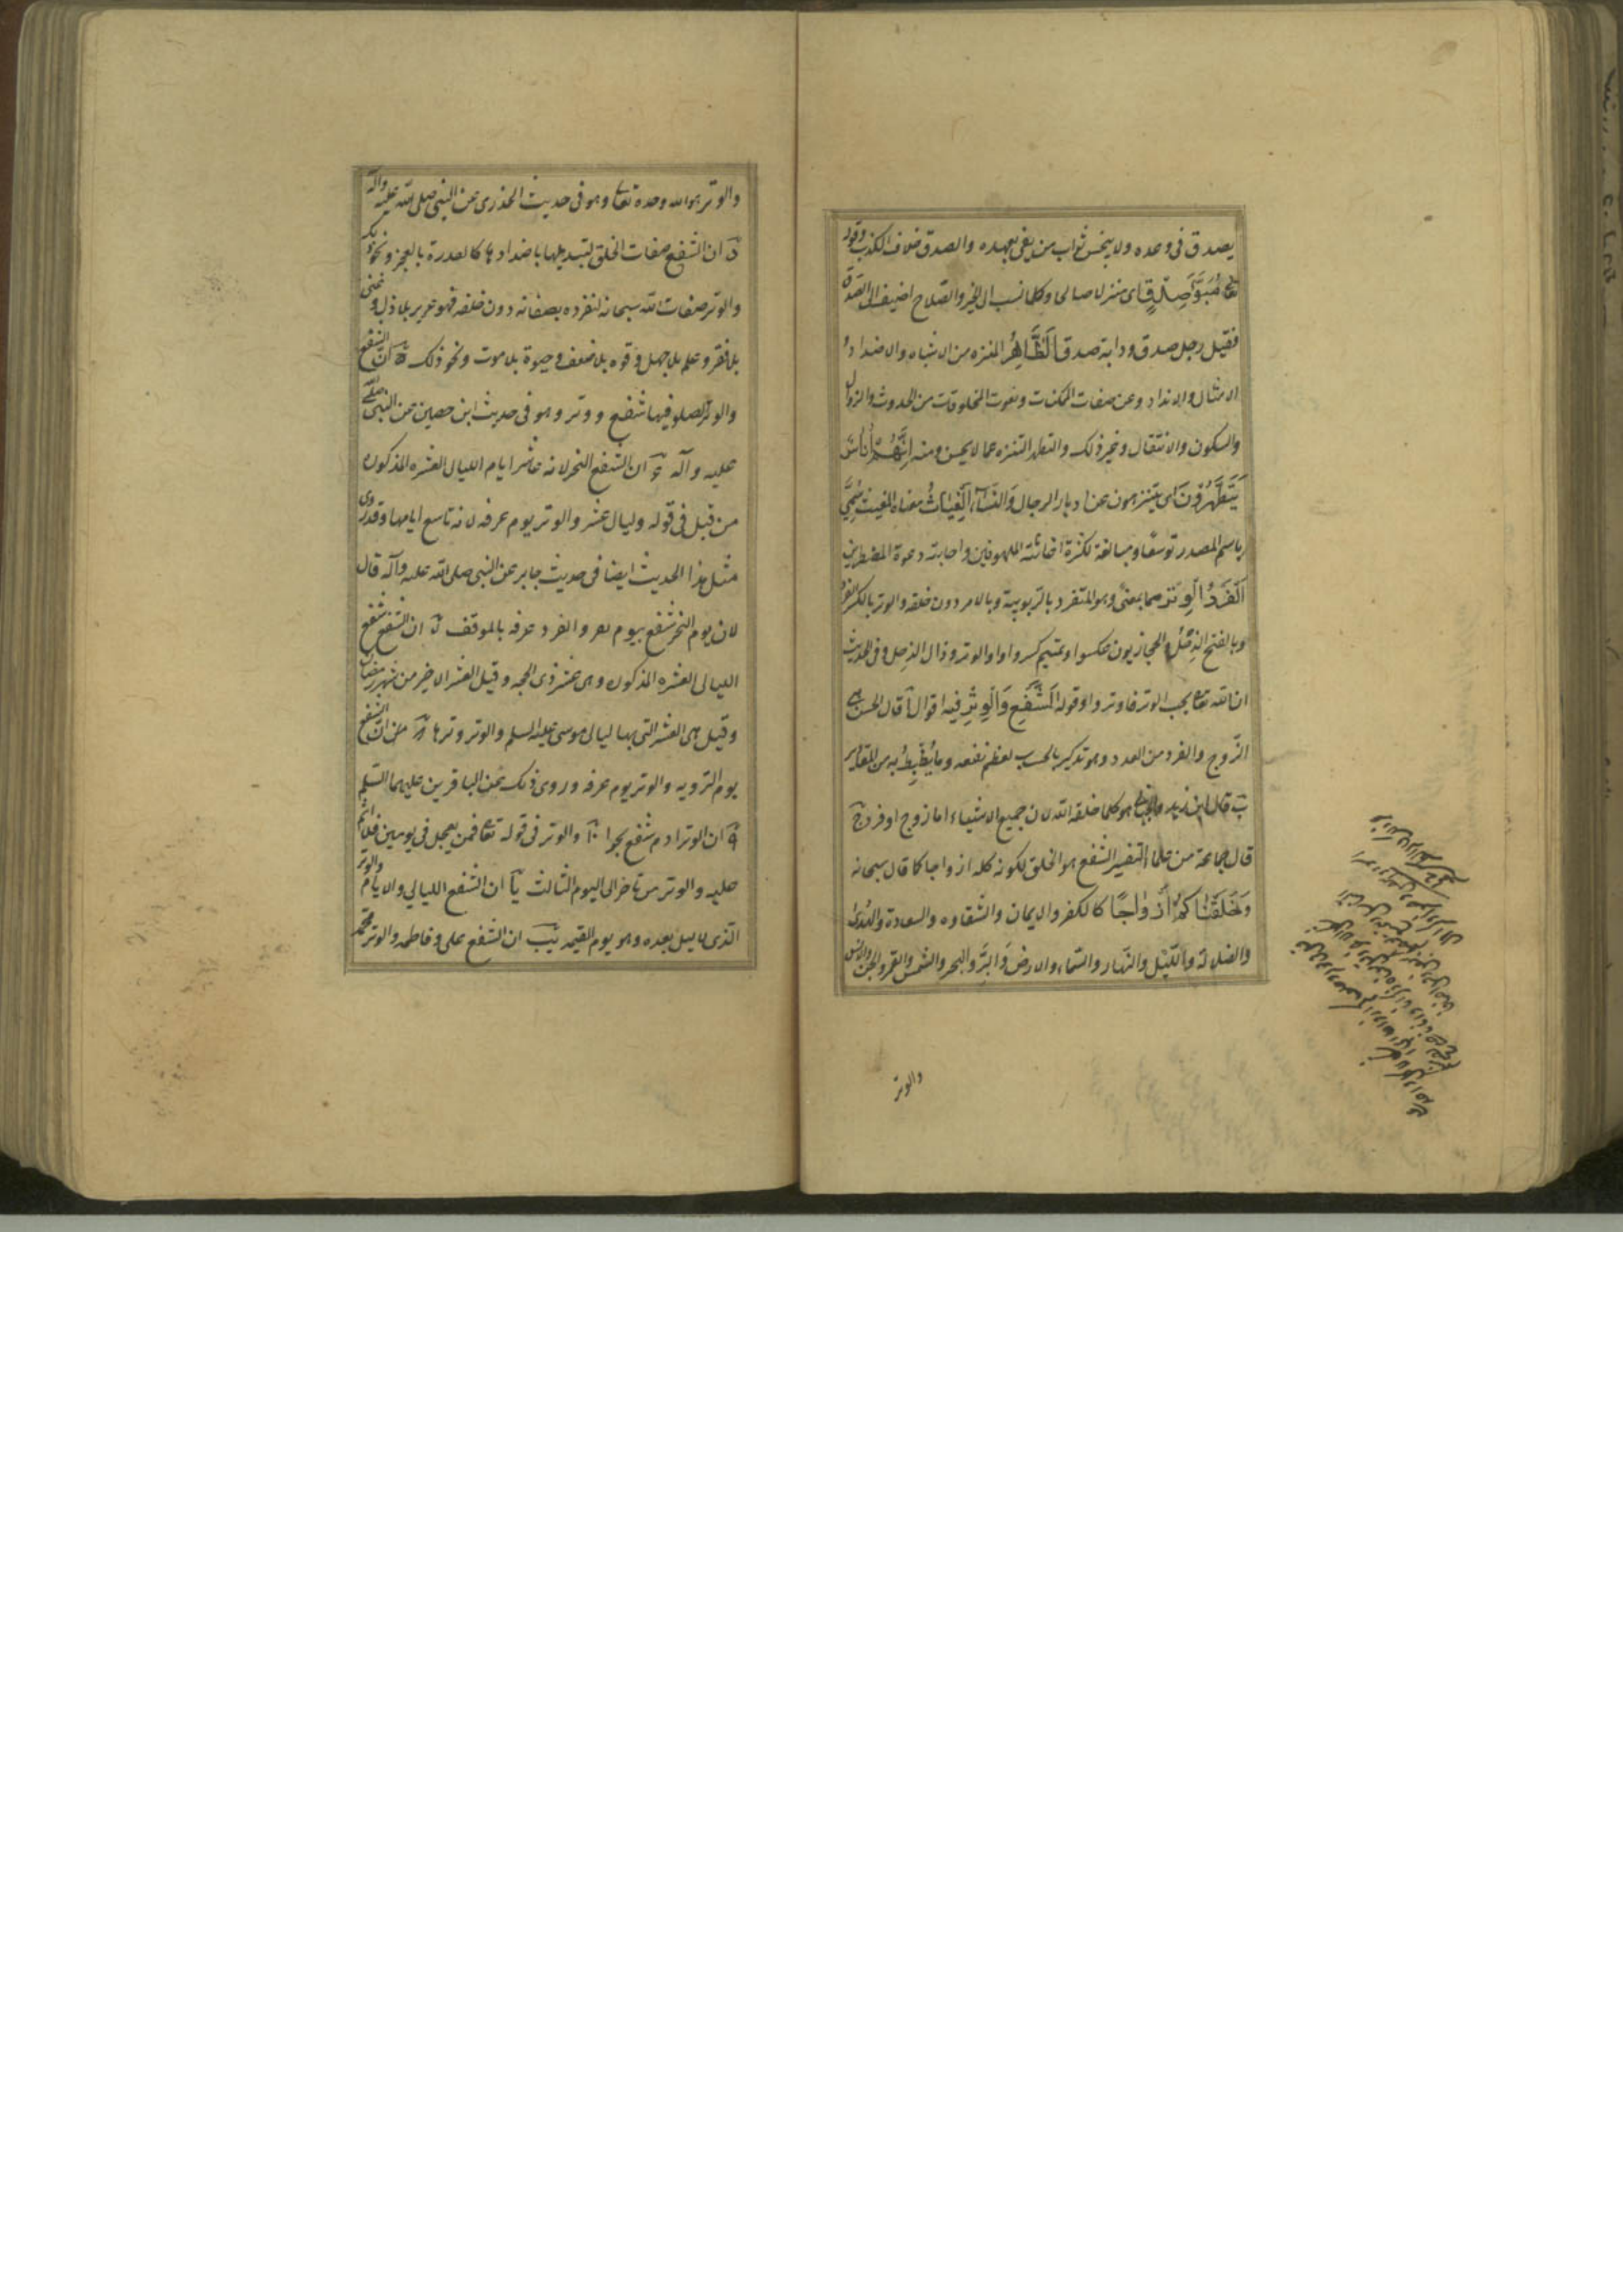 يصدق في وعده ولا يبخس ثواب من يفي بعهده والصدق خلاف الكذب وقوله
تعالى مُبَوَّأَ صِدْقٍ اى منزلا صالحا وكلما نسب الى الخير والصلاح اضيف الى الصدق
فقيل رجل صدق ودابة صدق الطَّاهِرُ المنزه من الاشباه والاضداد و
الامثال والانداد وعن صفات الممكنات ونعوت المخلوقات من الحدوث والزوال
والسكون والانتقال وغير ذلك والتطهر التنزه عما لا يحسن ومنه اِنَّهُمْ أُنَاسٌ
يَتَطَهَّرُونَ اى يتنزهون عن ادبار الرجال والنساء الْغِيَاثُ معناه المغيث سُمِّيَ
باسم المصدر توسعًا ومبالغة لكثرة اغاثته الملهوفين واجابته دعوة المضطرين
الْفَرْدُ الْوِتْرُ هما بمعنى وهو المتفرد بالربوبية وبالامر دون خلقه والوتر بالكسر الفرد
وبالفتح الذحل والحجازيون عكسوا وتميم كسروا واو الوتر وذال الذحل وفي الحديث
ان الله تعالى يحب الوتر فاوتروا وقوله الشَّفْعِ وَالْوِتْرِ فيه اقوال آ قال الحسن هي
الزوج والفرد من العدد وهو تذكير بالحسب لعظم نفعه وما يُضْبَطُ به من المقادير
ب قال ابن زيد هو كلما خلقه الله لان جميع الاشياء اما زوج او فرد ج
قال جماعة من علما التفسير الشفع هو الخلق لكونه كله ازواجا كما قال سبحانه
وَخَلَقْنَاكُمْ أَزْوَاجًا كالكفر والايمان والشقاوه والسعادة والهدى
والضلالة والليل والنهار والسماء والارض والبر والبحر والشمس والقمر والجن والانس
والوتر
والوتر هو الله وحده تعالى وهو في حديث الخدرى عن النبى صلى الله عليه وآله
د ان الشفع صفات الخلق لتبديلها باضدادها كالقدرة بالعجز ونحو ذلك
والوتر صفات الله سبحانه لتفرده بصفاته دون خلقه فهو عزيز بلا ذل وغنى
بلا فقر وعلم بلا جهل وقوه بلا ضعف وحيوة بلا موت ونحو ذلك ه ان الشفع
والوتر الصلو فيها شفع ووتر وهو في حديث ابن حصين عن النبى صلى الله
عليه وآله و ان الشفع النحر لانه عاشر ايام الليال العشره المذكوره
من قبل في قوله وليال عشر والوتر يوم عرفه لانه تاسع ايامها وقد روى
مثل هذا الحديث ايضا في حديث جابر عن النبى صلى الله عليه وآله قال
لان يوم النحر شفع بيوم نفر وانفرد عرفه بالموقف ز ان الشفع شفع
الليالى العشره المذكوره وهى عشر ذى الحجه وقيل العشر الاخير من شهر رمضان
وقيل هى العشر التى بها ليالى موسى عليه السلم والوتر وترها ح ان الشفع
يوم الترويه والوتر يوم عرفه وروى ذلك عن الباقرين عليهما السلم
ط ان الوتر ادم شفع بحوا ى والوتر في قوله تعالى فمن يعجل في يومين فلا اثم
عليه والوتر من تاخر الى اليوم الثالث يا ان الشفع الليالي والايام والوتر
الذى لا ليل بعده وهو يوم القيمه يب ان الشفع على وفاطمه والوتر محمد